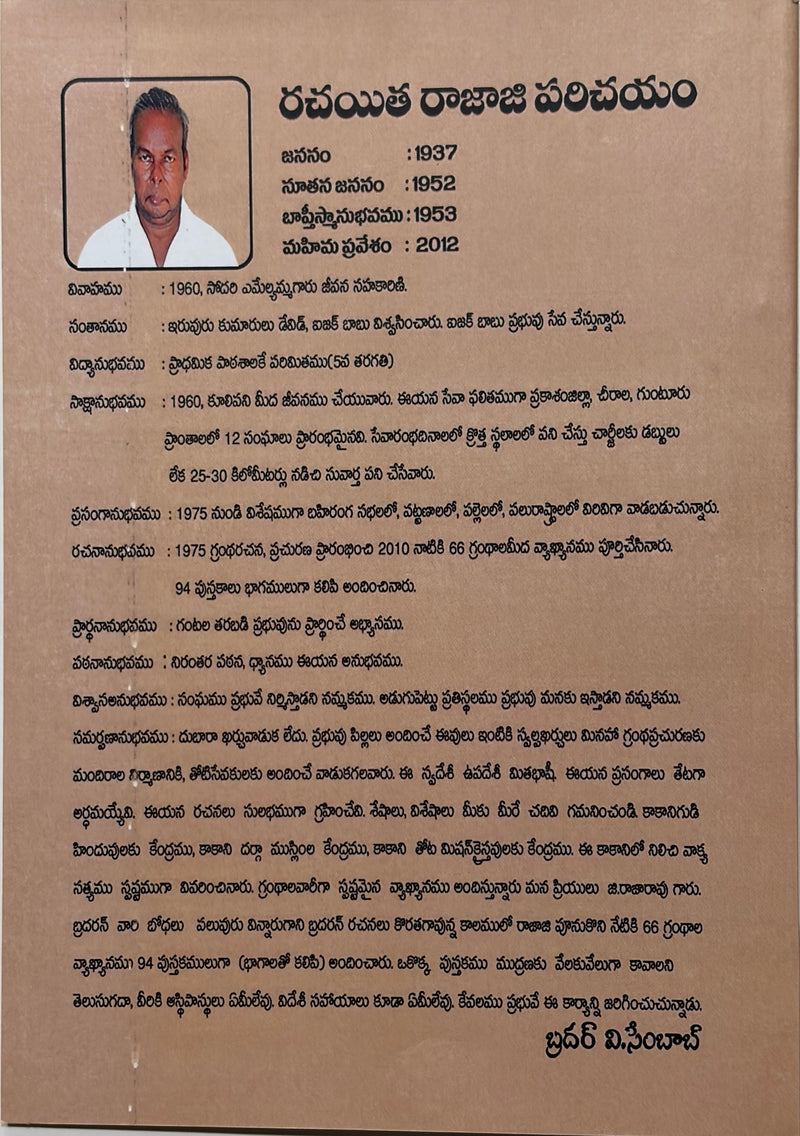 రచయిత రాజాజి పరిచయం
జననం : 1937
నూతన జననం : 1952
బాప్తీస్మానుభవము : 1953
మహిమ ప్రవేశం : 2012
వివాహము : 1960, సోదరి ఎమేల్యమ్మగారు జీవన సహకారిణి.
సంతానము : ఇరువురు కుమారులు డేవిడ్, ఐజక్ బాబు విశ్వసించారు. ఐజక్ బాబు ప్రభువు సేవ చేస్తున్నారు.
విద్యానుభవము : ప్రాధమిక పాఠశాలకే పరిమితము(5వ తరగతి)
సాక్షానుభవము : 1960, కూలిపని మీద జీవనము చేయువారు. ఈయన సేవా ఫలితముగా ప్రకాశంజిల్లా, చీరాల, గుంటూరు
ప్రాంతాలలో 12 సంఘాలు ప్రారంభమైనవి. సేవారంభదినాలలో క్రొత్త స్థలాలలో పని చేస్తు చార్జీలకు డబ్బులు
లేక 25-30 కిలోమీటర్లు నడిచి సువార్త పని చేసేవారు.
ప్రసంగానుభవము : 1975 నుండి విశేషముగా బహిరంగ సభలలో, పట్టణాలలో, పల్లెలలో, పలురాష్ట్రాలలో విరివిగా వాడబడుచున్నారు.
రచనానుభవము : 1975 గ్రంథరచన, ప్రచురణ ప్రారంభించి 2010 నాటికి 66 గ్రంథాలమీద వ్యాఖ్యానము పూర్తిచేసినారు.
94 పుస్తకాలు భాగములుగా కలిపి అందించినారు.
ప్రార్థనానుభవము : గంటల తరబడి ప్రభువును ప్రార్థించే అభ్యానము.
పఠనానుభవము : నిరంతర పఠన, ధ్యానము ఈయన అనుభవము.
విశ్వాసఅనుభవము : సంఘము ప్రభువే నిర్మిస్తాడని నమ్మకము. అడుగుపెట్టు ప్రతిస్థలము ప్రభువు మనకు ఇస్తాడని నమ్మకము.
సమర్పణానుభవము : దుబారా ఖర్చువాడుక లేదు. ప్రభువు పిల్లలు అందించే ఈవులు ఇంటికి స్వల్పఖర్చులు మినహా గ్రంథప్రచురణకు
మందిరాల నిర్మాణానికి, తోటిసేవకులకు అందించే వాడుకగలవారు. ఈ స్వదేశీ ఉపదేశీ మితభాషీ. ఈయన ప్రసంగాలు తేటగా
అర్ధమయ్యేవి. ఈయన రచనలు సులభముగా గ్రహించేవి. శేషాలు, విశేషాలు మీకు మీరే చదివి గమనించండి. కాకానిగుడి
హిందువులకు కేంద్రము, కాకాని దర్గా ముస్లింల కేంద్రము, కాకాని తోట మిషన్‌క్రైస్తవులకు కేంద్రము. ఈ కాకానిలో నిలిచి వాక్య
సత్యము స్పష్టముగా వివరించినారు. గ్రంథాలవారీగా స్పష్టమైన వ్యాఖ్యానము అందిస్తున్నారు మన ప్రియులు జి.రాజారావు గారు.
బ్రదరన్ వారి బోధలు పలువురు విన్నారుగాని బ్రదరన్ రచనలు కొరతగావున్న కాలములో రాజాజి పూనుకొని నేటికి 66 గ్రంథాల
వ్యాఖ్యానము 94 పుస్తకములుగా (భాగాలతో కలిపి) అందించారు. ఒకొక్క పుస్తకము ముద్రణకు వేలకువేలుగా కావాలని
తెలుసుగదా, వీరికి ఆస్థిపాస్థులు ఏమీలేవు. విదేశీ సహాయాలు కూడా ఏమీలేవు. కేవలము ప్రభువే ఈ కార్యాన్ని జరిగించుచున్నాడు.
బ్రదర్ వి.సేంబాబ్